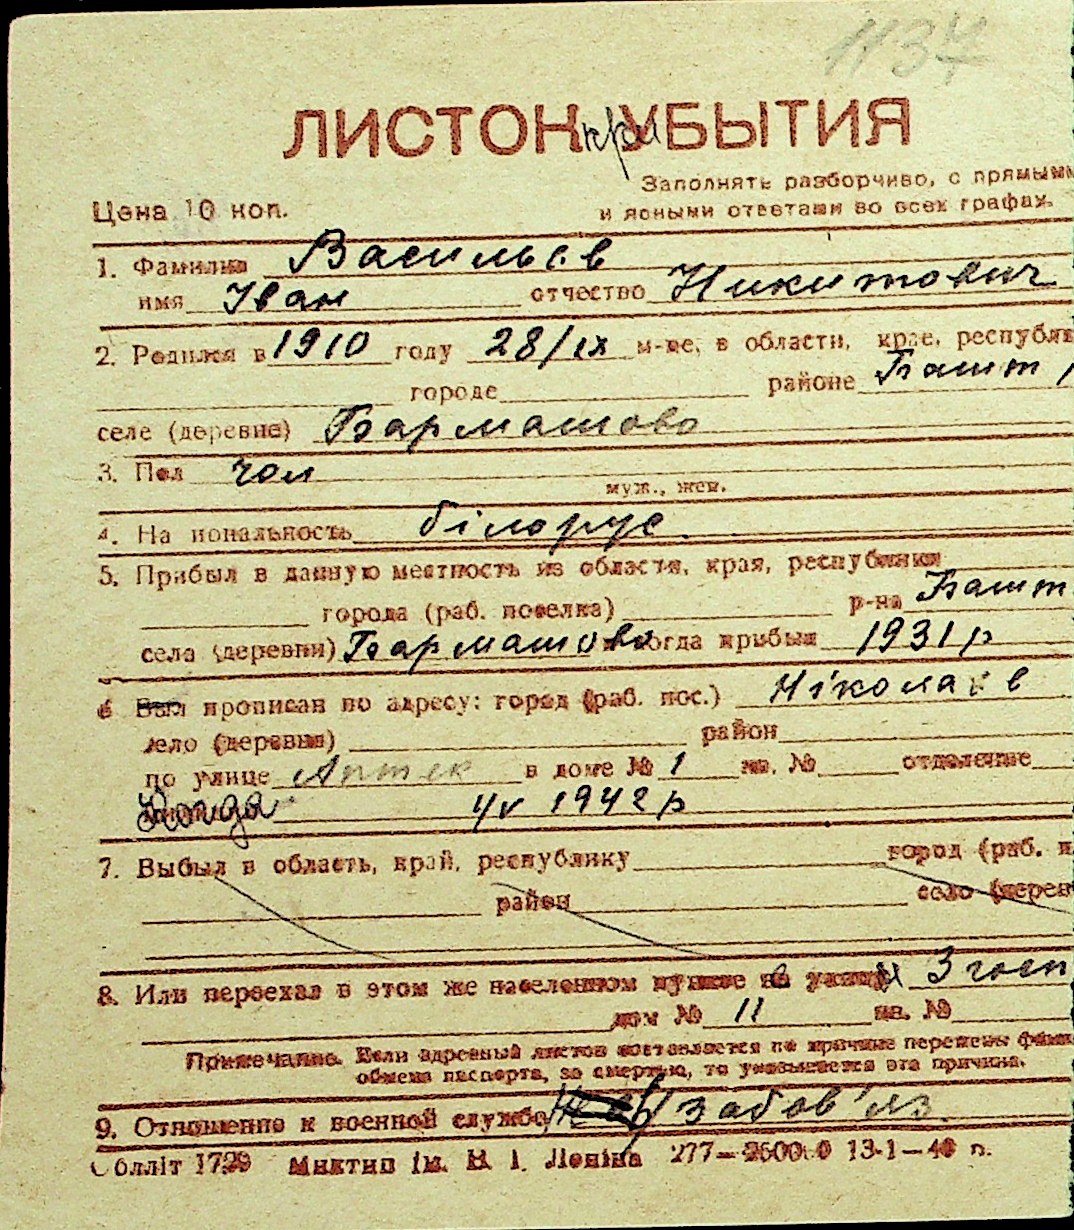 1137
ЛИСТОК при УБЫТИЯ
Заполнять разборчиво, с прямыми
Цена 10 коп. и ясными ответами во всех графах.
1. Фамилия Васильєв
имя Іван отчество Никитович
2. Родился в 1910 году 28/ІХ м-це, в области, крае, республи
городе районе Башт
селе (деревне) Бармашово
3. Пол чол
муж., жен.
4. На иональность білорус
5. Прибыл в данную местность из области, края, республики
города (раб. поселка) р-на Башт
села (деревни) Бармашово когда прибыл 1931 р
6 Был прописан по адресу: город (раб. пос.) Ніколаєв
село (деревня) район
по улице Аптек в доме № 1 кв. № отделение
Когда 4/V 1942 р
7. Выбыл в область, край, республику город (раб. п
район село (дерев
8. Или переехал в этом же населенном пункте на улицу 3 госп
дом № 11 кв. №
Примечание. Если адресный листок составляется по причине перемены фами
обмена паспорта, за смертью, то указывается эта причина.
9. Отношение к военной службе в/забов'яз.
Облліт 1729 Миктип ім. В. І. Леніна 277—25000 13-1—40 п.